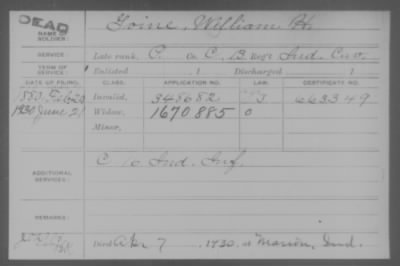 DEAD
NAME OF SOLDIER: Goine, William H.
SERVICE: Late rank, P. Co. C, 13 Reg't Ind. Cav.
TERM OF SERVICE: Enlisted , 1 Discharged , 1
DATE OF FILING. CLASS. APPLICATION NO. LAW. CERTIFICATE NO.
1883 Feb 23 Invalid, 348682 663349
1930 June 2 Widow, 1670885 0
Minor,
ADDITIONAL SERVICES: C 10 Ind. Inf.
REMARKS:
Died Apr 7, 1930, at Marion, Ind.